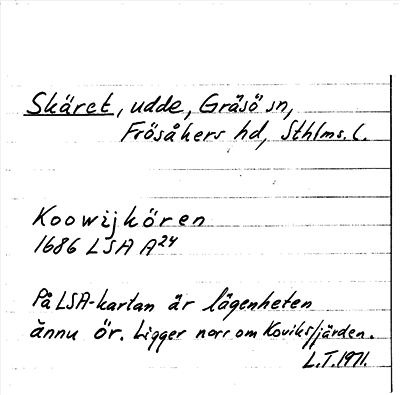 Skäret, udde, Gräsö sn,
Frösåkers hd, Sthlms. l.
Koowijkören
1686 LSA A24
På LSA-kartan är lägenheten
ännu ör. Ligger norr om Koviksfjärden.
L.T. 1971.